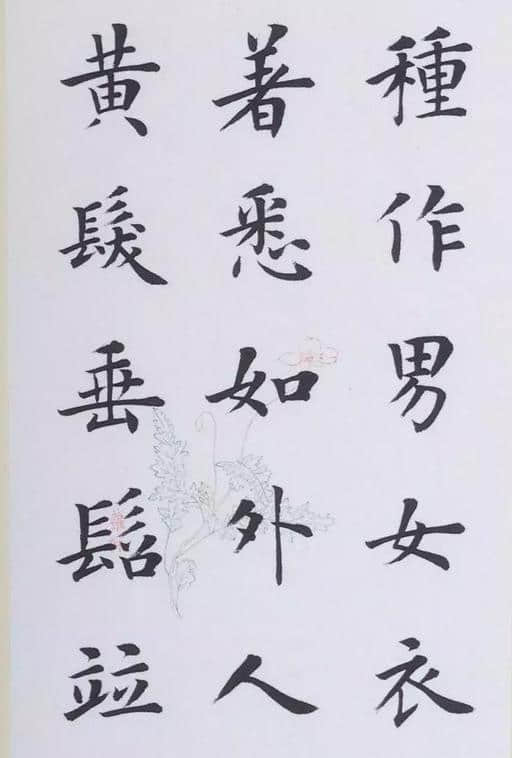 種作男女衣
著悉如外人
黄髮垂髫竝